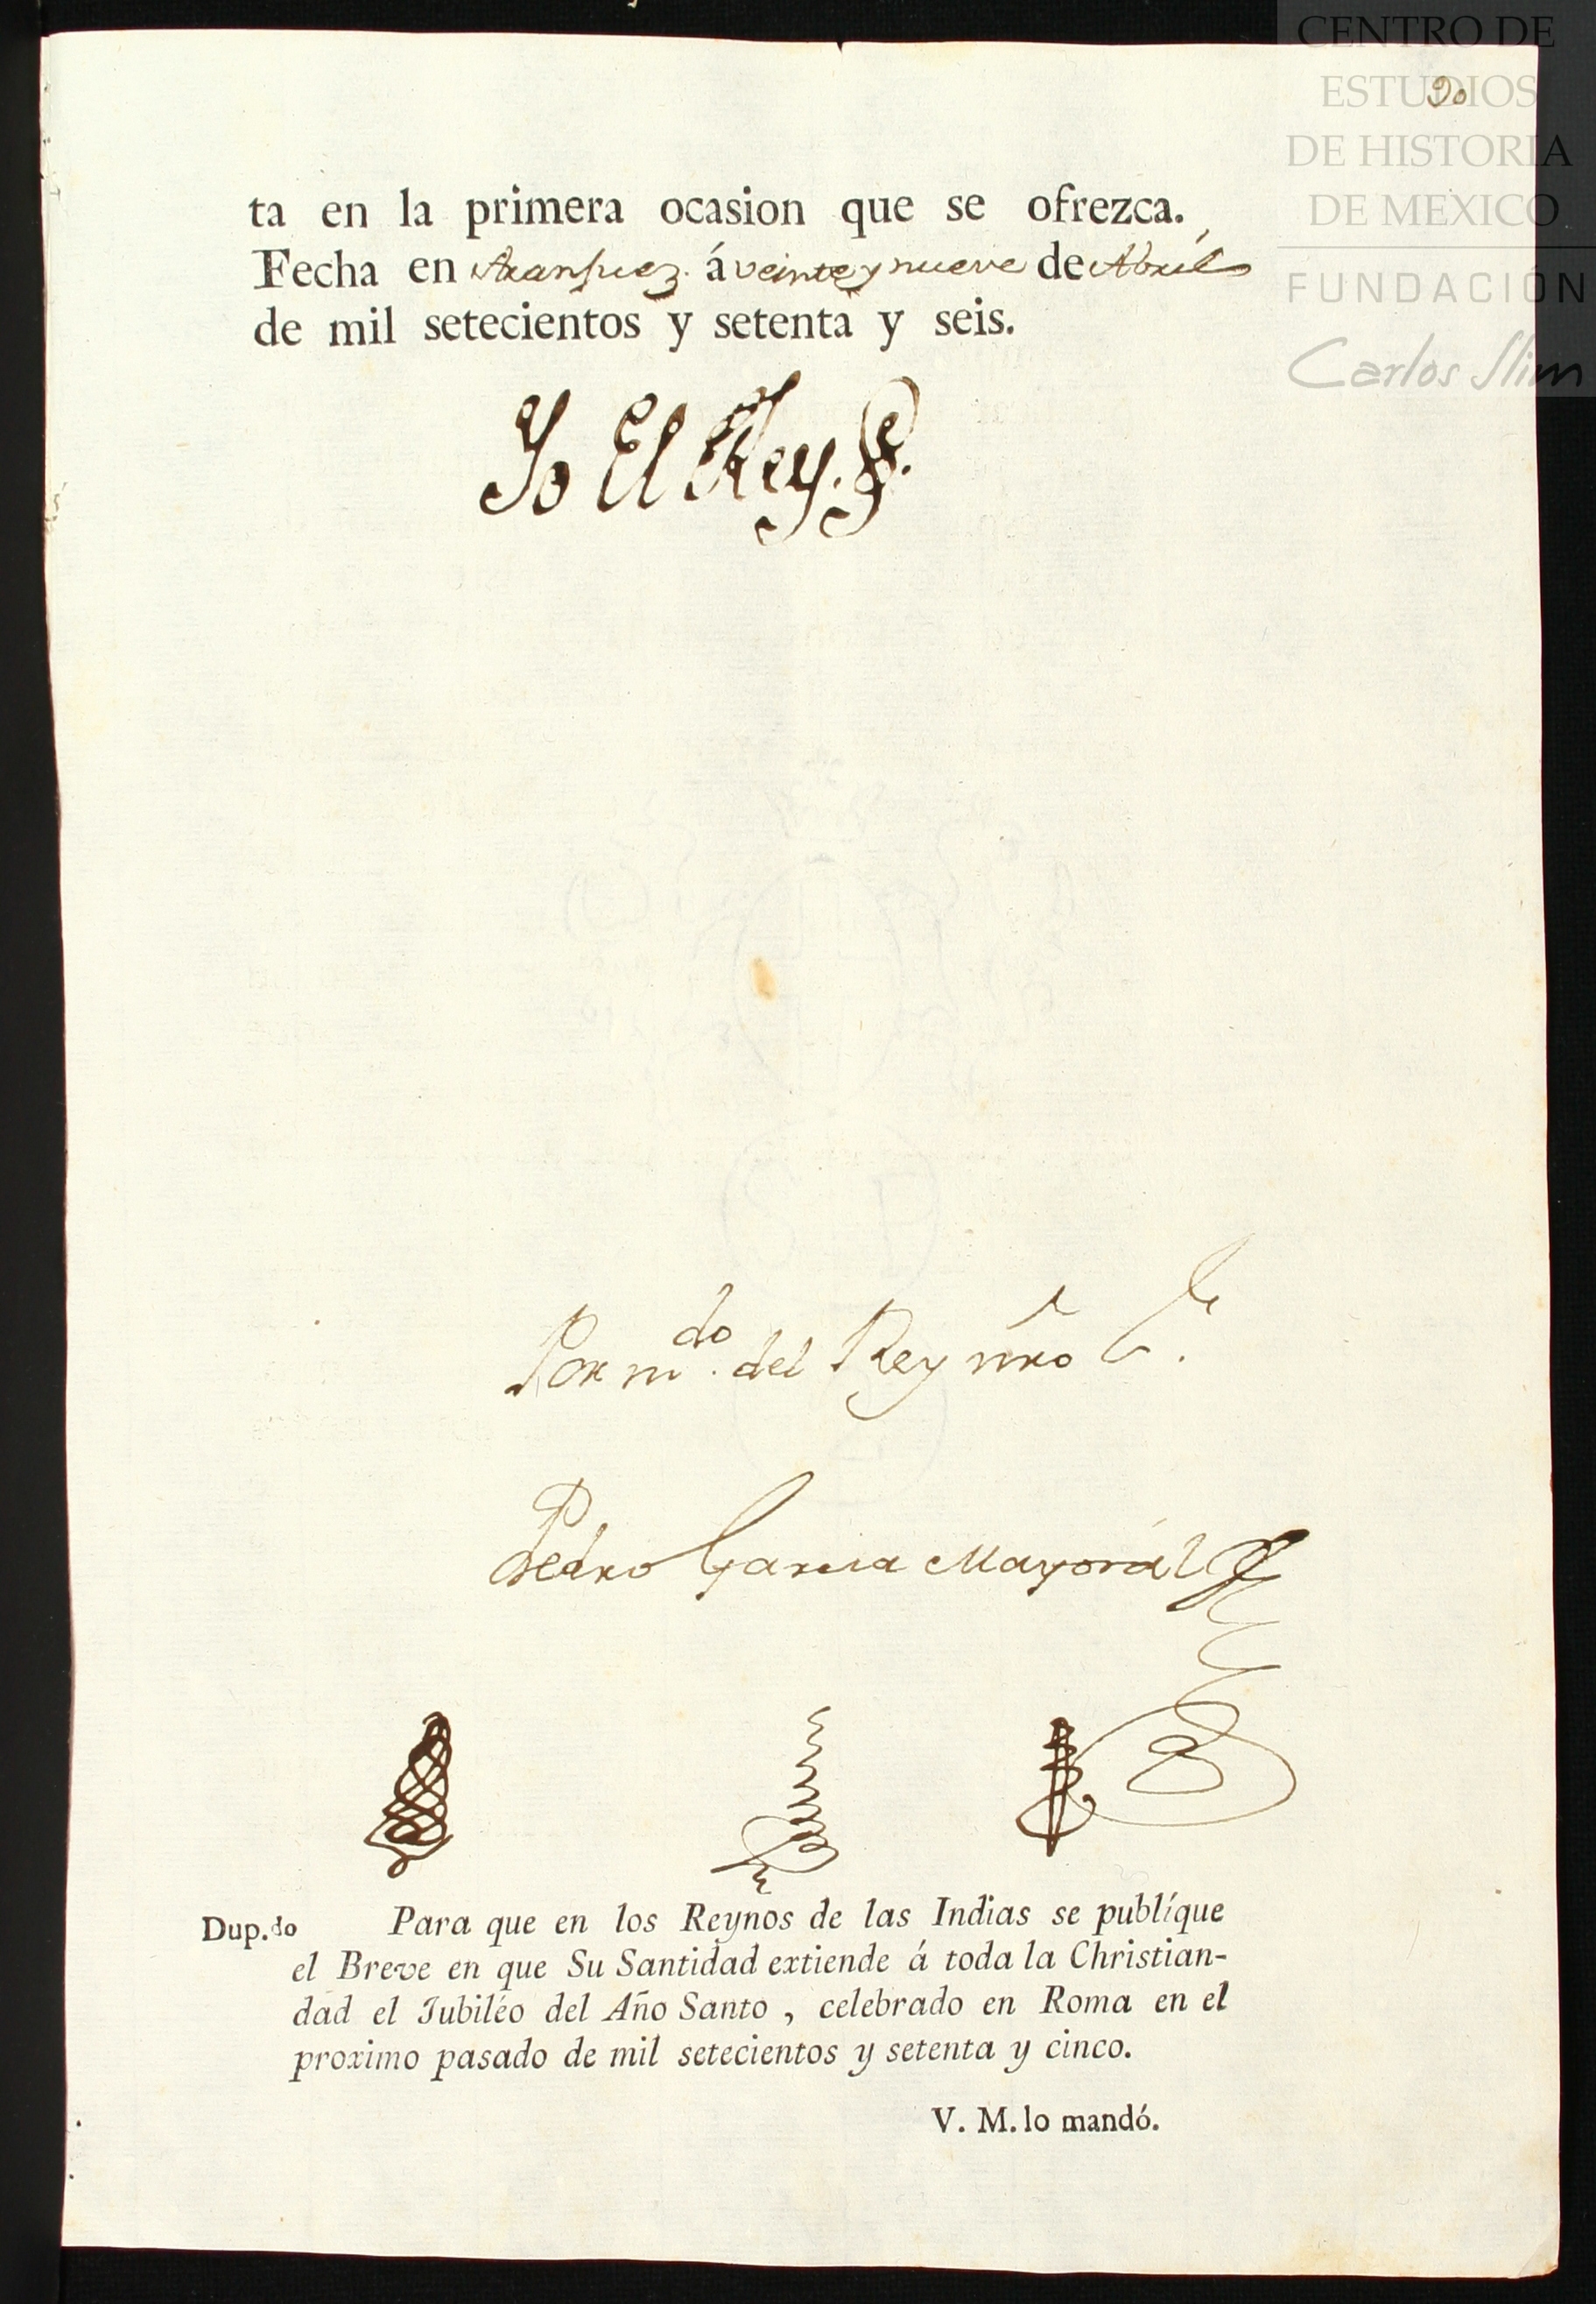 CENTRO DE
ESTUDIOS
DE HISTORIA
DE MEXICO
FUNDACIÓN
Carlos Slim
90
ta en la primera ocasion que se ofrezca.
Fecha en Aranjuez. á veinte y nueve de Abril
de mil setecientos y setenta y seis.
Yo El Rey.
Por m.do del Rey nro S.r
Pedro Garcia Mayorál
Dup.do Para que en los Reynos de las Indias se publíque
el Breve en que Su Santidad extiende á toda la Christian-
dad el Jubiléo del Año Santo, celebrado en Roma en el
proximo pasado de mil setecientos y setenta y cinco.
V. M. lo mandó.